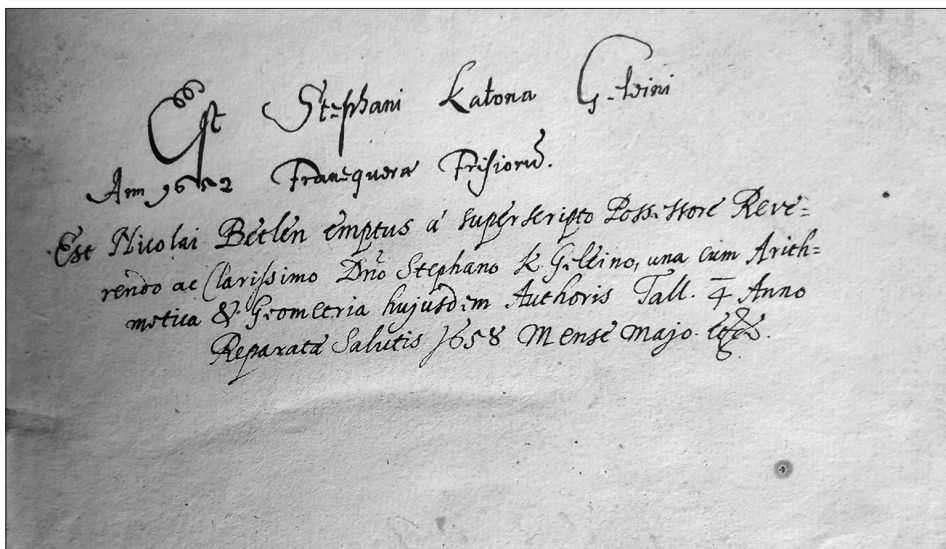 Est Stephani Katona Geleini
Ann 1652 Franequeræ Frisiorũ.
Est Nicolai Betlen emptus á superscripto Possessore Reve=
rendo ac Clarissimo Dnõ Stephano K. Gellino, una cum Arith=
metica & Geometria hujusdem Authoris Tall. 4 Anno
Reparatæ Salutis 1658 Mense Majo.